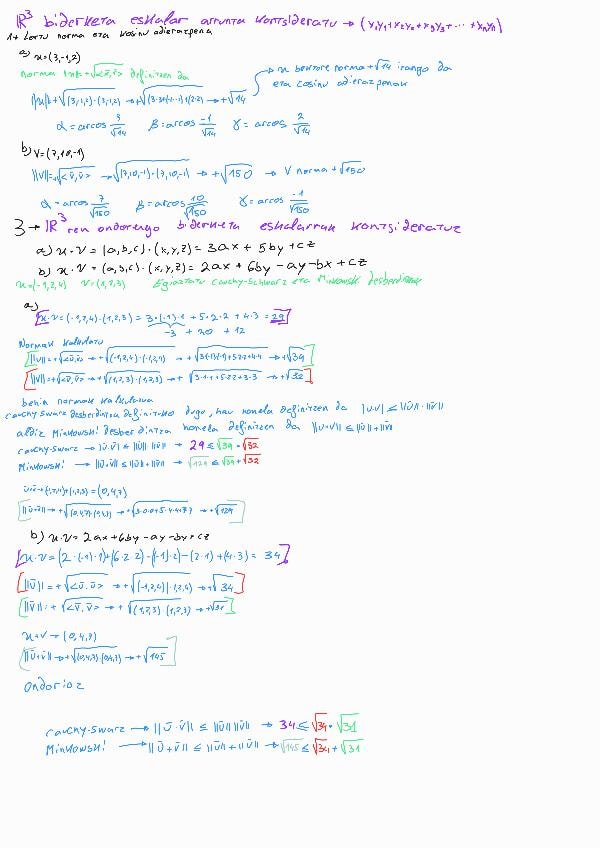 IR³ biderketa eskalar arrunta kontsideratu → (x₁y₁+x₂y₂+x₃y₃+⋯+xₙyₙ)
1+ Lortu norma eta kosinu adierazpena
a) u=(3,-1,2)
norma ||u||=+√<ū,ū> definitzen da
||u||=+√(3,-1,2)·(3,-1,2) → +√(3·3)+(-1·-1)+(2·2) → +√14
→ u bektore norma +√14 izango da
eta cosinu adierazpenak
α = arcos 3/√14 β = arcos -1/√14 γ = arcos 2/√14
b) v=(7,10,-1)
||V||=+√<v̄,v̄> → √(7,10,-1)·(7,10,-1) → +√150 → V norma +√150
α = arcos 7/√150 β = arcos 10/√150 γ = arcos -1/√150
3→ IR³ ren ondorengo biderketa eskalarrak kontsideratuz
a) u·v = (a,b,c)·(x,y,z) = 3ax + 5by + cz
b) u·v = (a,b,c)·(x,y,z) = 2ax + 6by - ay - bx + cz
u=(-1,2,4) v=(1,2,3) Egiaztatu Cauchy-Schwarz eta Minkowski desberdinak
a)
[u·v = (-1,2,4)·(1,2,3) = 3·(-1)·1 + 5·2·2 + 4·3 = 29]
-3 + 20 + 12
Normak kalkulatu
[||U||=+√<ū,ū> → +√(-1,2,4)·(-1,2,4) → +√3·(-1)·(-1)+5·2·2+4·4 → +√39]
[||V||=+√<v̄,v̄> → +√(1,2,3)·(1,2,3) → +√3·1·1+5·2·2+3·3 → +√32]
behin normak kalkulatuta
cauchy-swarz desberdintza definituko dugu, hau honela definitzen da |u·v| ≤ ||ū||·||v̄||
aldiz Minkowski desberdintza honela definitzen da ||u+v|| ≤ ||ū||+||v̄||
cauchy-swarz → |ū·v̄| ≤ ||ū||·||v̄|| → 29 ≤ √39·√32
Minkowski → ||ū+v̄|| ≤ ||ū||+||v̄|| → √129 ≤ √39+√32
ū+v̄→(-1,2,4)+(1,2,3)=(0,4,7)
[||ū+v̄|| → +√(0,4,7)·(0,4,7) → +√3·0·0+5·4·4+7·7 → +√129]
b) u·v = 2ax+6by-ay-bx+cz
[u·v = (2·(-1)·1)+(6·2·2)-(-1)·2)-(2·1)+(4·3) = 34]
[||ū||=+√<ū,ū> → +√(-1,2,4)(-1,2,4) → +√34]
[||V̄||=+√<v̄,v̄> → +√(1,2,3)·(1,2,3) → +√31]
u+v → (0,4,7)
[||ū+v̄|| → +√(0,4,7)·(0,4,7) → +√145]
Ondorioz
cauchy-swarz → ||ū·v̄|| ≤ ||ū||·||v̄|| → 34 ≤ √34·√31
Minkowski → ||ū+v̄|| ≤ ||ū||+||v̄|| → √145 ≤ √34+√31